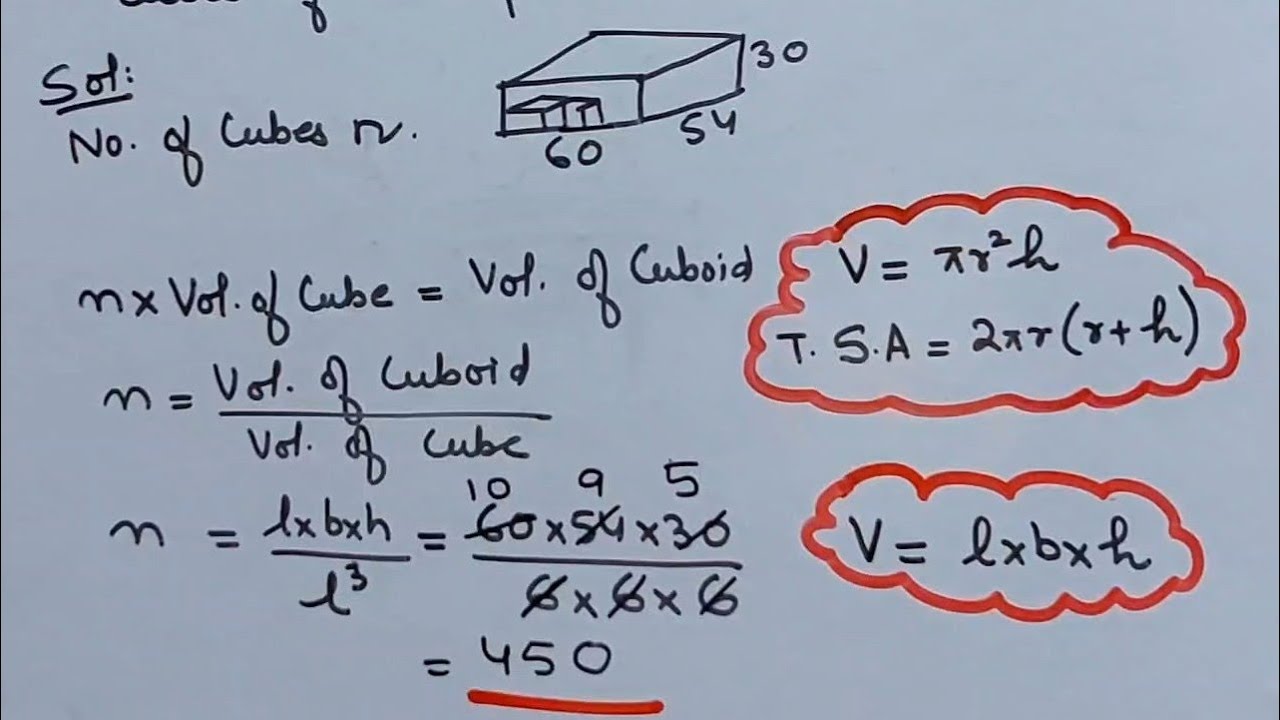 Sol:
No. of Cubes n.
30
54
60
n x Vol. of Cube = Vol. of Cuboid
n = Vol. of Cuboid / Vol. of Cube
10 9 5
n = l x b x h / l³ = 60 x 54 x 30 / 6 x 6 x 6
= 450
V = πr²h
T. S.A = 2πr(r + h)
V = l x b x h